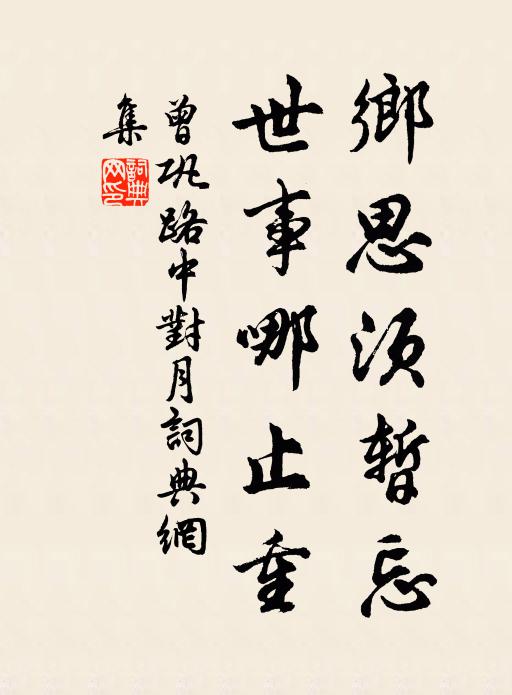 鄉思須暫忘
世事哪止重
曾巩路中對月詞典網
集
詞典網印